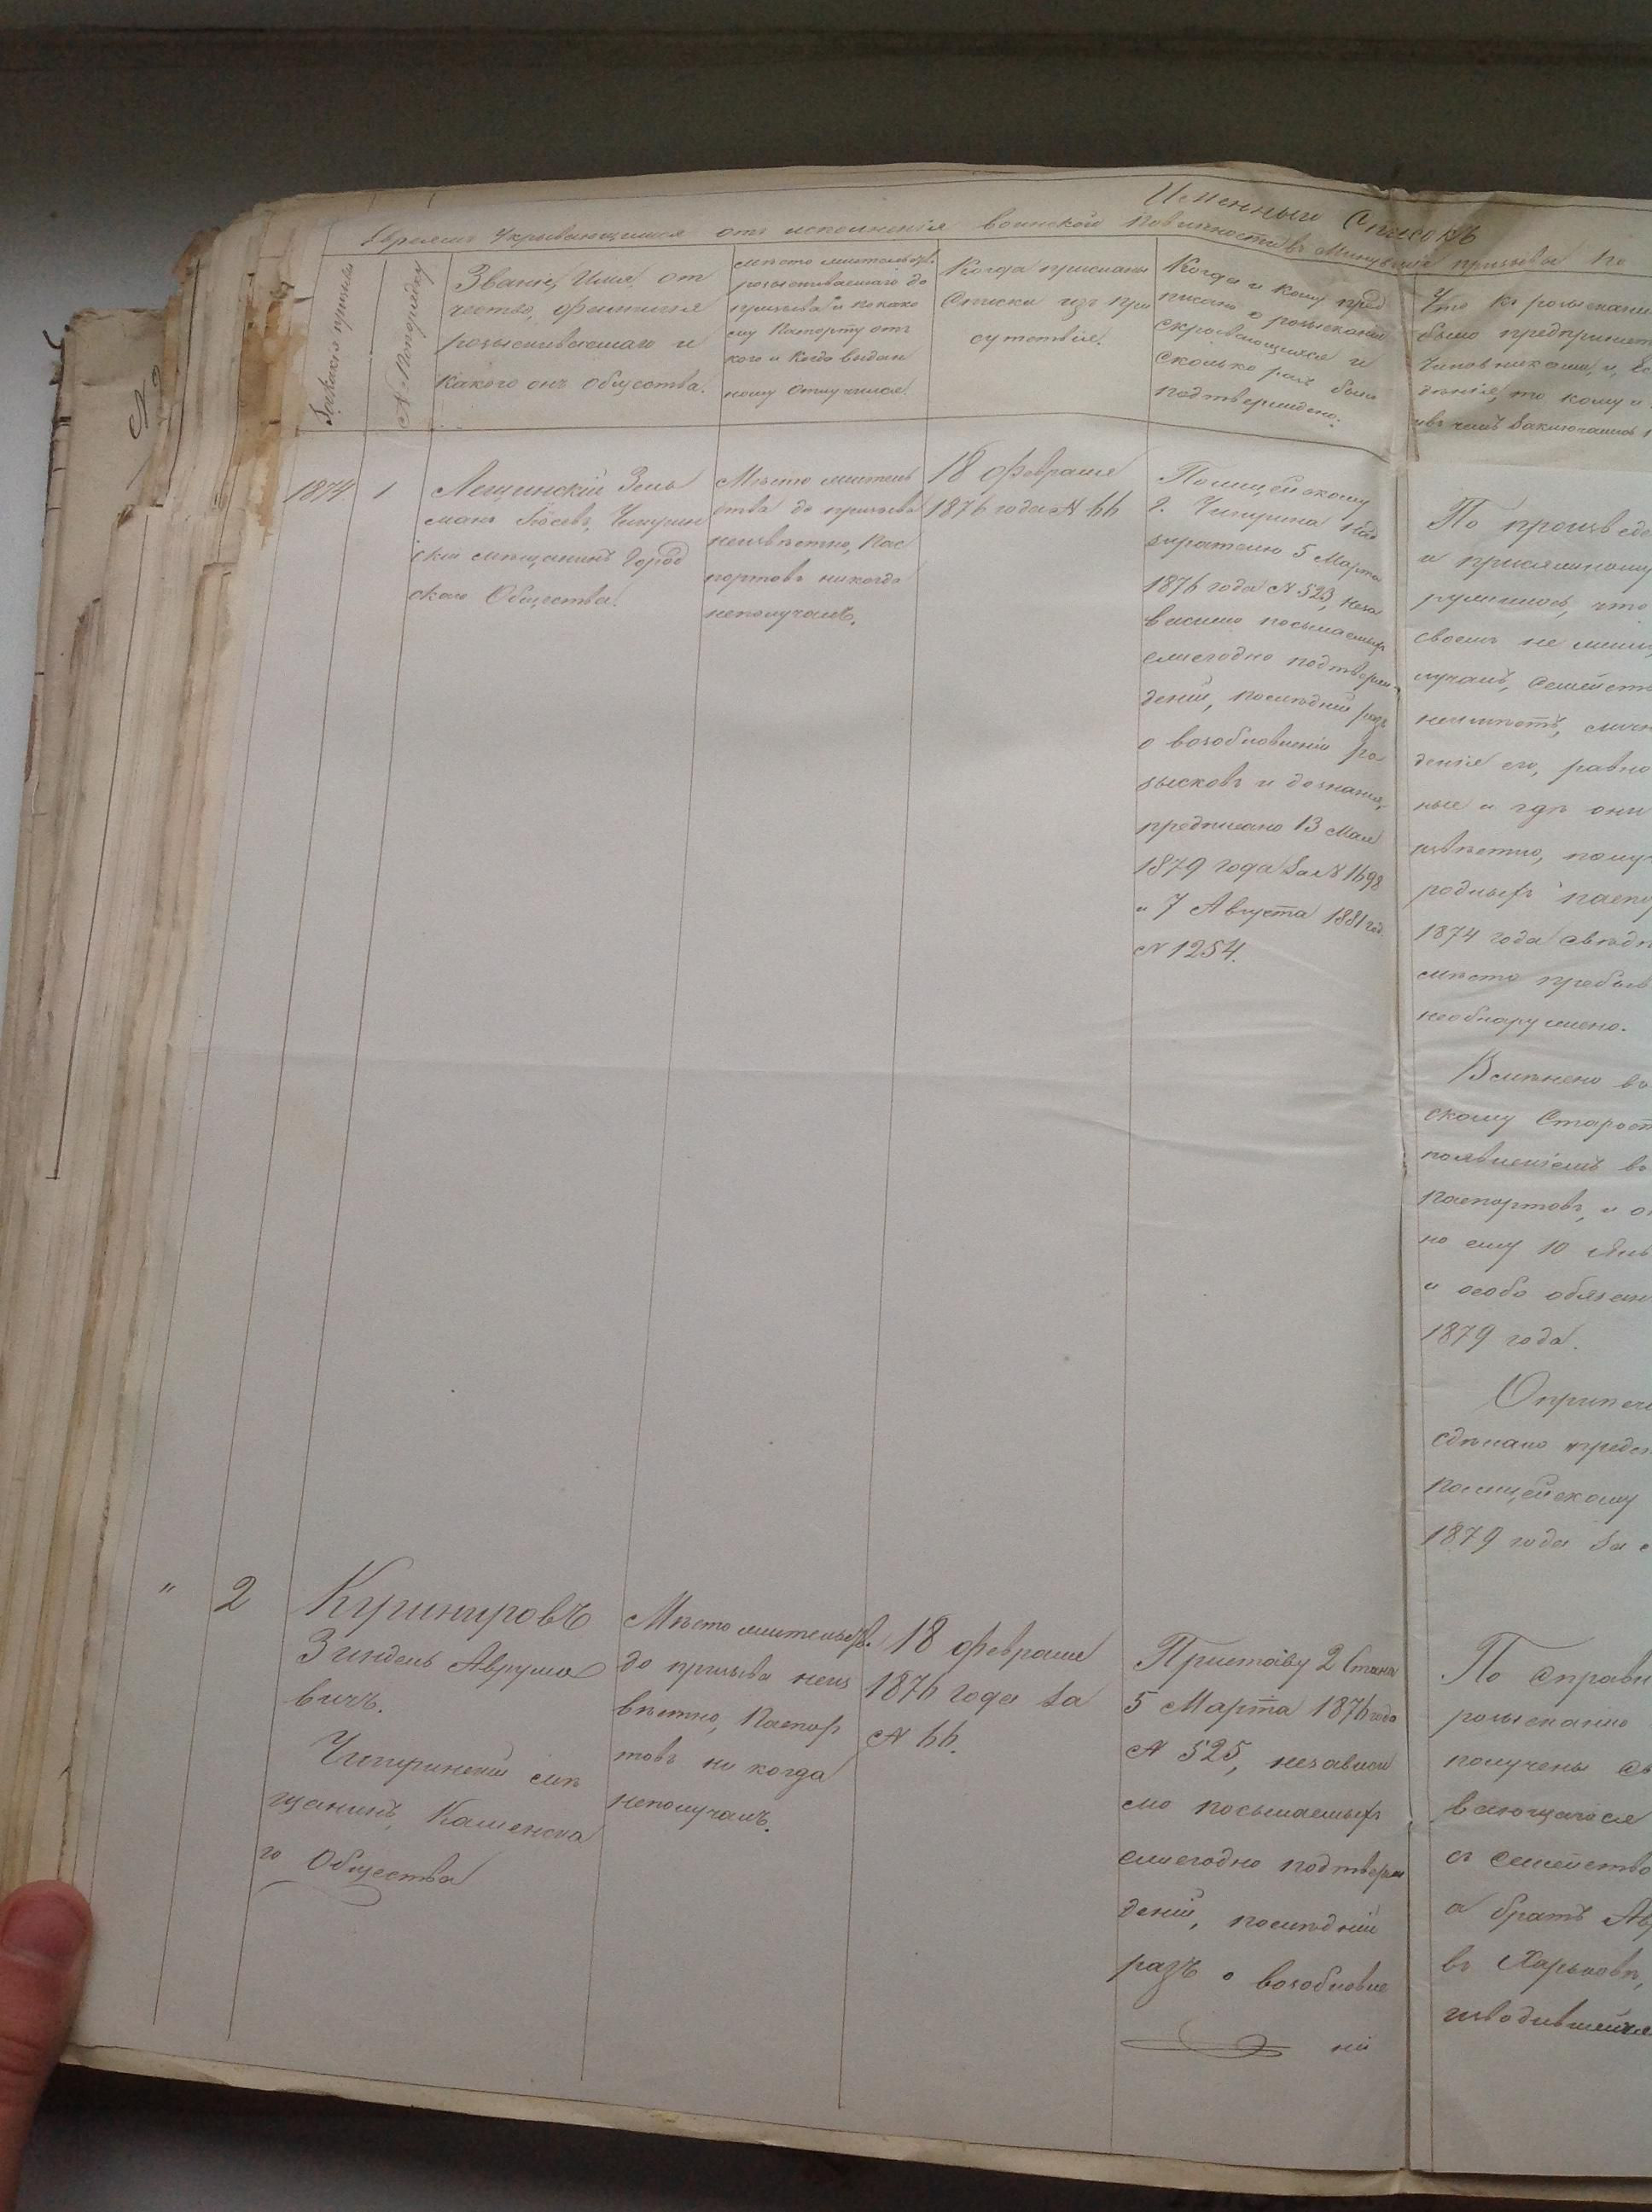 Именный Списокъ
Евреямъ Укрывающимся отъ исполненія воинской повинности въ минувшіе призывы по
Званіе, Имя, от
чество, фамилія
розыскиваемаго и
какого онъ общества.
мѣсто жительств.
розыскиваемаго до
призыва и по како
му Паспорту отъ
кого и когда выдан
ному отлучился
Когда присланы
Списки изъ При
сутствія.
Когда и кому пред
писано о розысканіи
скрывающихся и
сколько разъ было
подтверждено.
Что къ розыскани
было предпринят
чиновниками, и
кому и
въ чемъ заключались
№ Попорядку
1874
1
Лещинскій Зель
манъ Іосевъ, Чигирин
скій мѣщанинъ Город
скаго Общества.
Мѣсто житель
ства до призыва
неизвѣстно, Пас
портовъ никогда
неполучалъ.
18 февраля
1876 года № 66
Полицейскому
г. Чигирина над
зирателю 5 Марта
1876 года № 523, неза
висимо посылаемыхъ
ежегодно подтверж
деній, послѣдній разъ
о возобновленіи ро
зысковъ и дознанія,
предписано 13 Мая
1879 года за № 1698
и 7 Августа 1881 год.
№ 1254.
По произведе
и присяжному
ружилось, что
своемъ не
лучалъ, Семейств
неимѣетъ,
денія его, равно
ные и гдѣ они
извѣстно,
родныхъ паспо
1874 года свѣдѣ
мѣсто пребыв
необнаружено.
Вмѣнено въ
скому Старост
появленіемъ въ
паспортовъ, и
но ему 10 Янв
и особо обязан
1879 года.
сдѣлано предс
Полицейскому
1879 года за
"
2
Куринировъ
Зиндель Аврумо
вичъ.
Чигиринскій мѣ
щанинъ, Каменска
го Общества
Мѣсто жительств.
до призыва неиз
вѣстно, Паспор
товъ ни когда
неполучалъ.
18 февраля
1876 года за
№ 66.
Приставу 2 Стана
5 Марта 1876 года
№ 525, независи
мо посылаемыхъ
ежегодно подтверж
деній, послѣдній
разъ о возобновле
ніи
По справк
розысканію
получены св
вающагося
съ семейство
а братъ Ав
въ Харьковѣ,